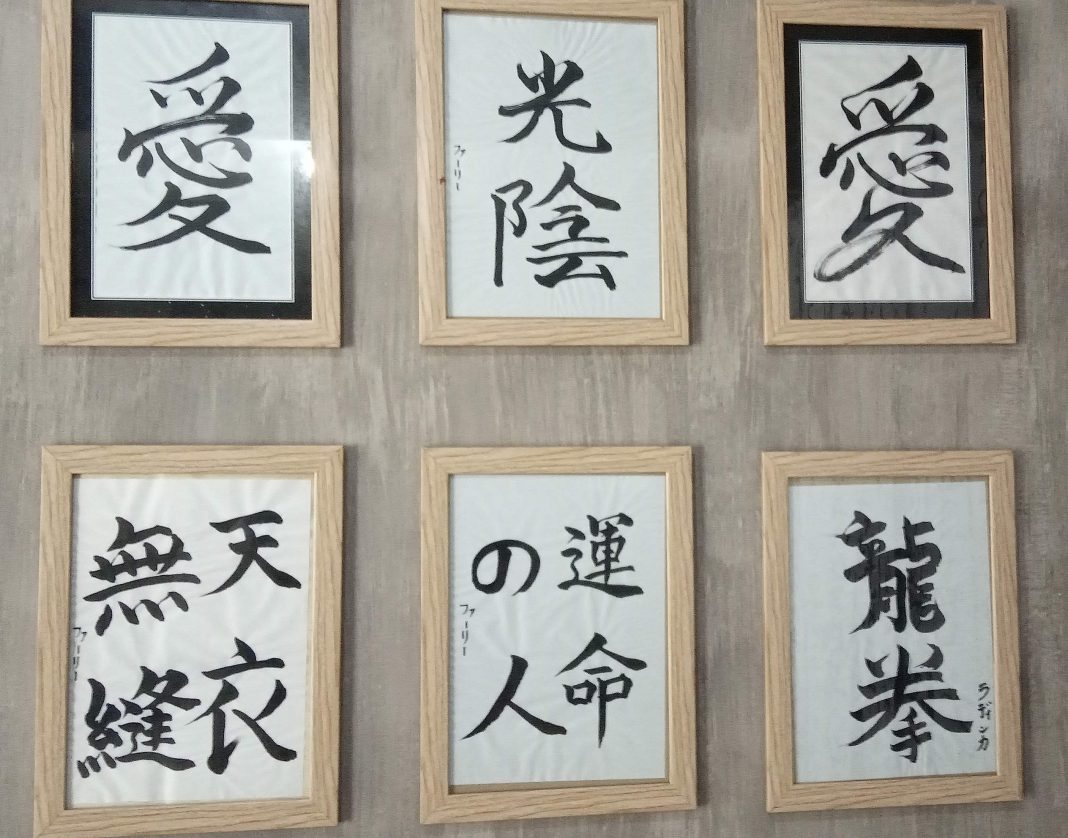 愛
光陰
ファーリー
愛
天衣
無縫
ファーリー
運命
の人
ファーリー
龍拳
ラディンカ